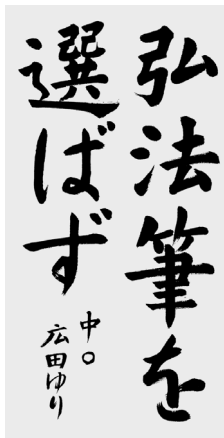 弘法筆を
選ばず
中〇
広田ゆり